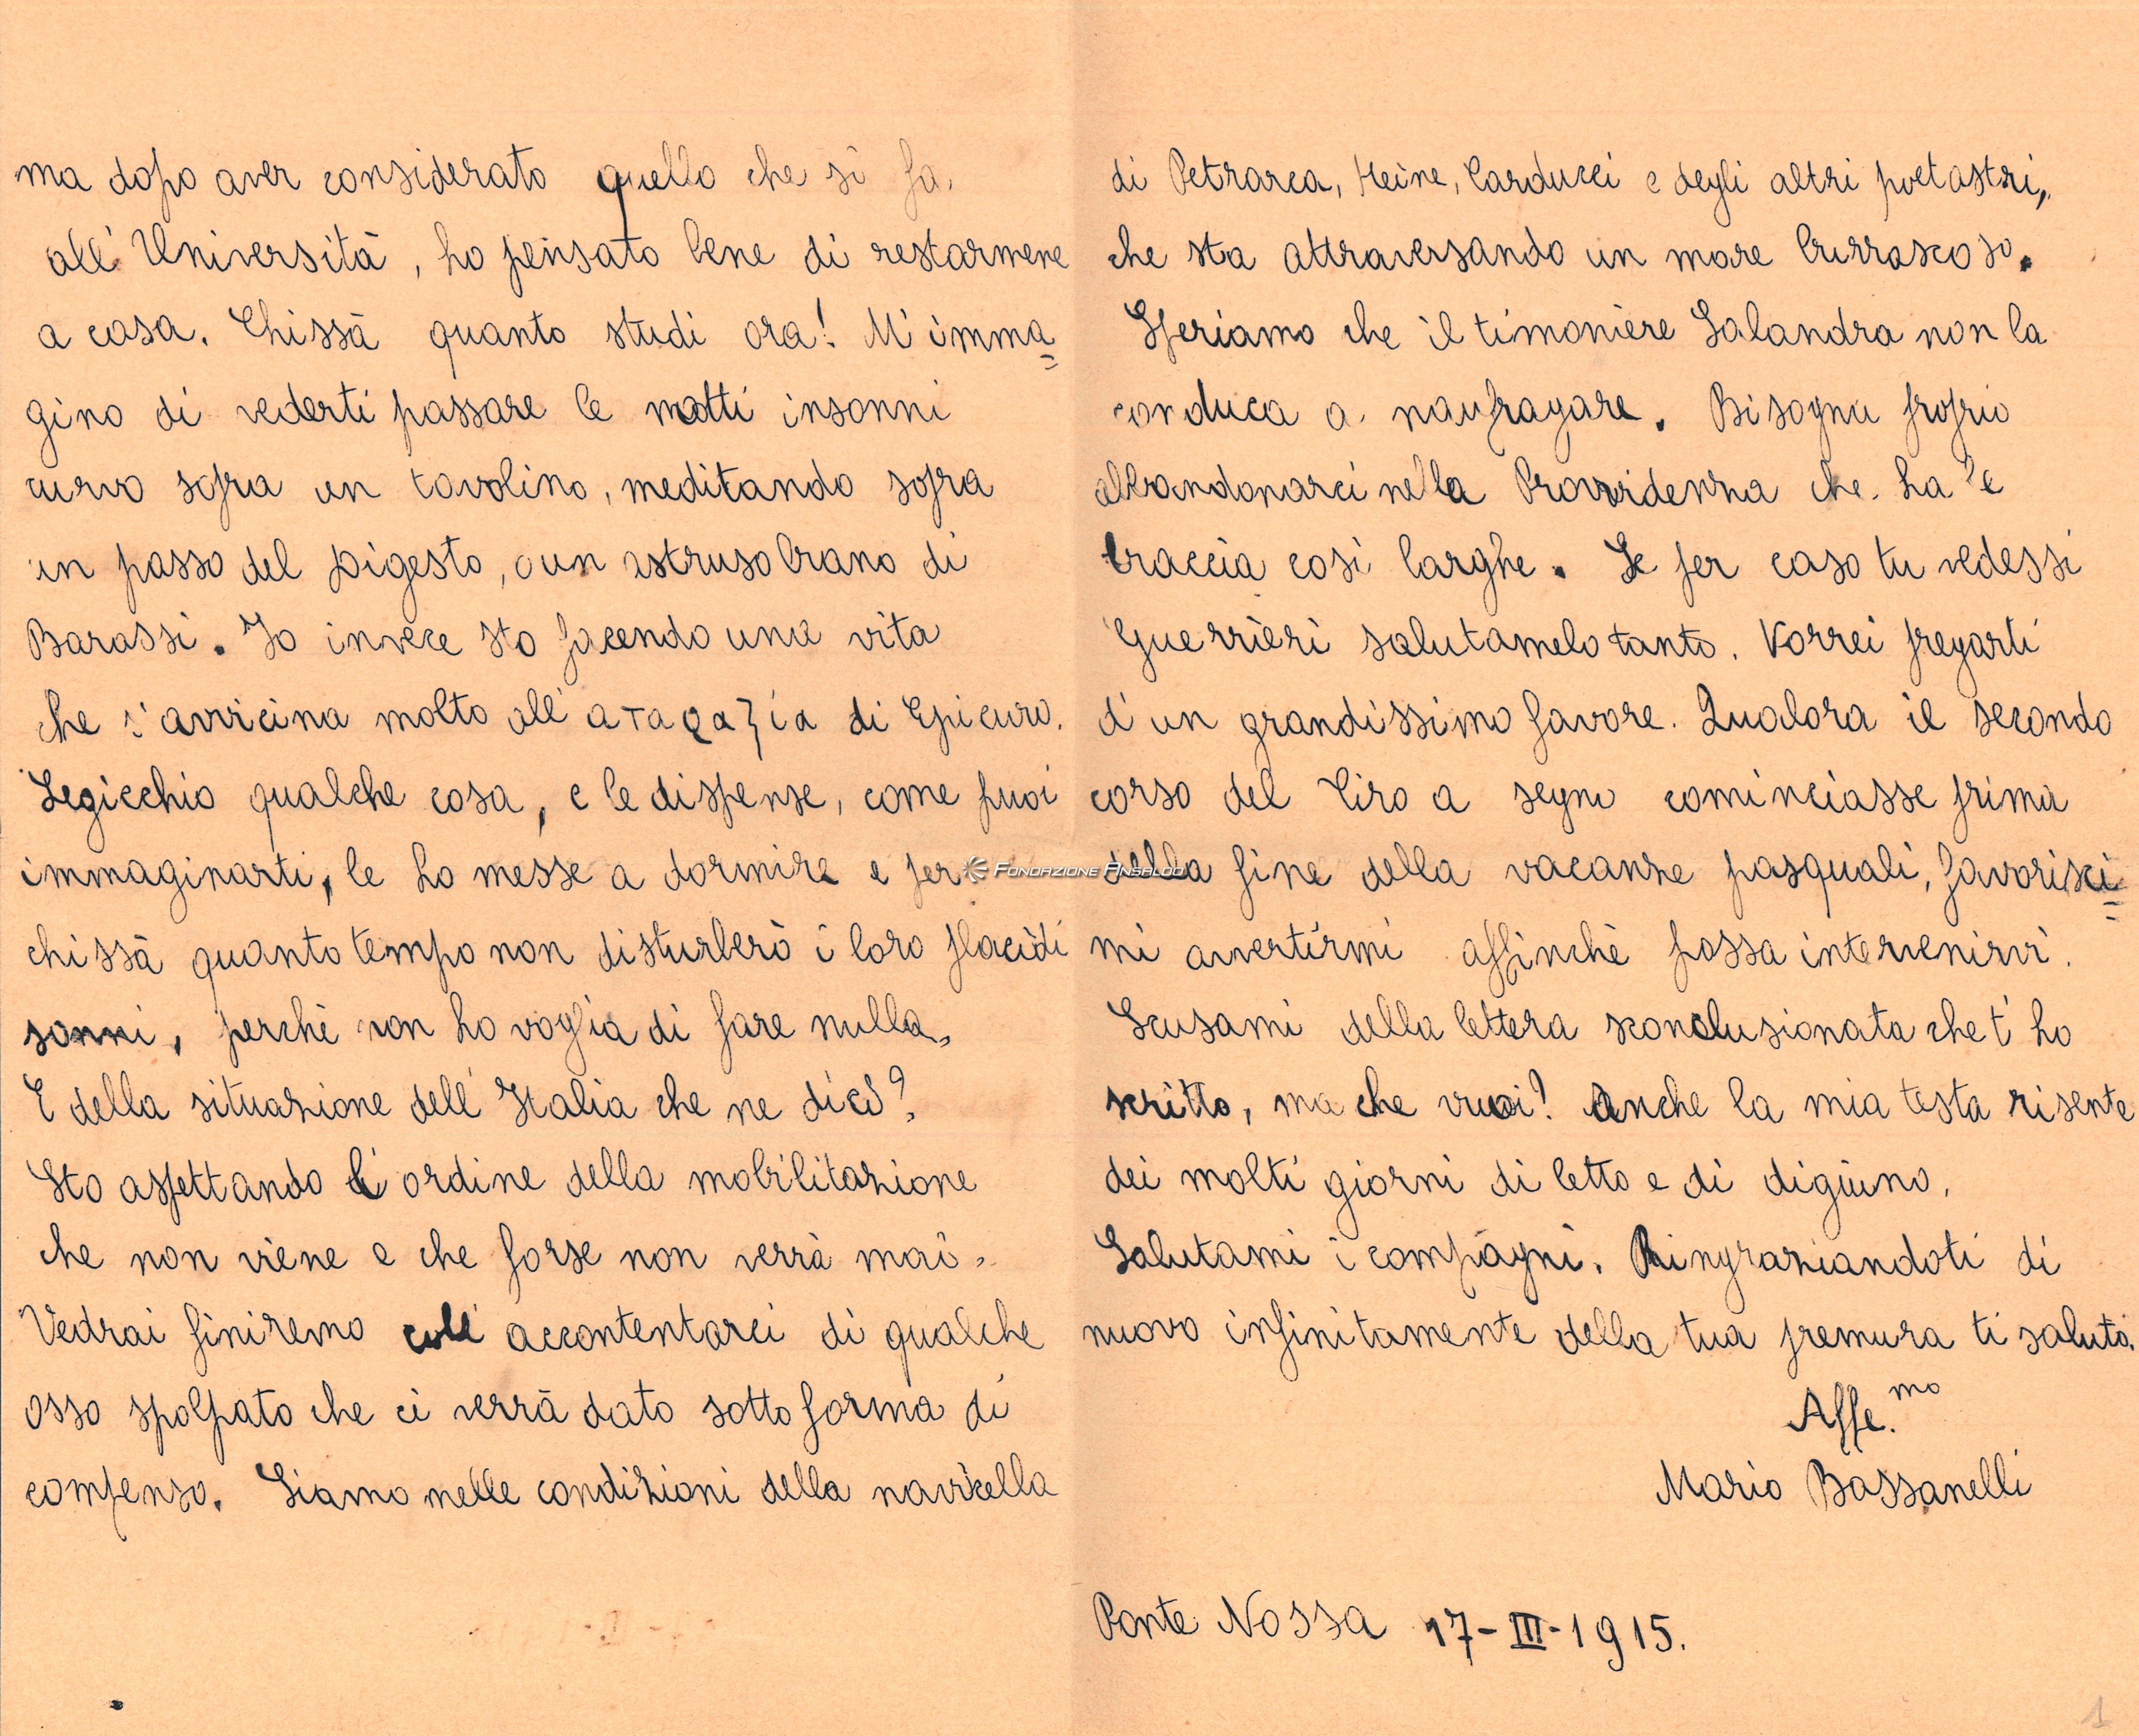 ma dopo aver considerato quello che si fa,
all'Università, ho pensato bene di restarmene
a casa. Chissà quanto studi ora! M'imma=
gino di vederti passare le notti insonni
curvo sopra un tavolino, meditando sopra
un passo del Digesto, o un astruso brano di
Barassi. Io invece sto facendo una vita
che s'avvicina molto all'αταραξία di Epicuro.
Legicchio qualche cosa, e le dispense, come puoi
immaginarti, le ho messe a dormire e per
chissà quanto tempo non disturberò i loro placidi
sonni, perchè non ho voglia di fare nulla.
E della situazione dell'Italia che ne dici?
Sto aspettando l'ordine della mobilitazione
che non viene e che forse non verrà mai.
Vedrai finiremo coll'accontentarci di qualche
osso spolpato che ci verrà dato sotto forma di
compenso. Siamo nelle condizioni della navicella
di Petrarca, Heine, Carducci e degli altri poetastri,
che sta attraversando un mare burrascoso.
Speriamo che il timoniere Salandra non la
conduca a naufragare. Bisogna proprio
abbandonarci nella Provvidenza che ha le
braccia così larghe. Se per caso tu vedessi
Guerrieri salutamelo tanto. Vorrei pregarti
d'un grandissimo favore. Qualora il secondo
corso del Tiro a segno cominciasse prima
della fine della vacanze pasquali, favorisci=
mi avvertirmi affinchè possa intervenirvi.
Scusami della lettera sconclusionata che t'ho
scritto, ma che vuoi! Anche la mia testa risente
dei molti giorni di letto e di digiuno.
Salutami i compagni. Ringraziandoti di
nuovo infinitamente della tua premura ti saluto.
Affe.mo
Mario Bassanelli
Ponte Nossa 17-III-1915.
1
Fondazione Ansaldo